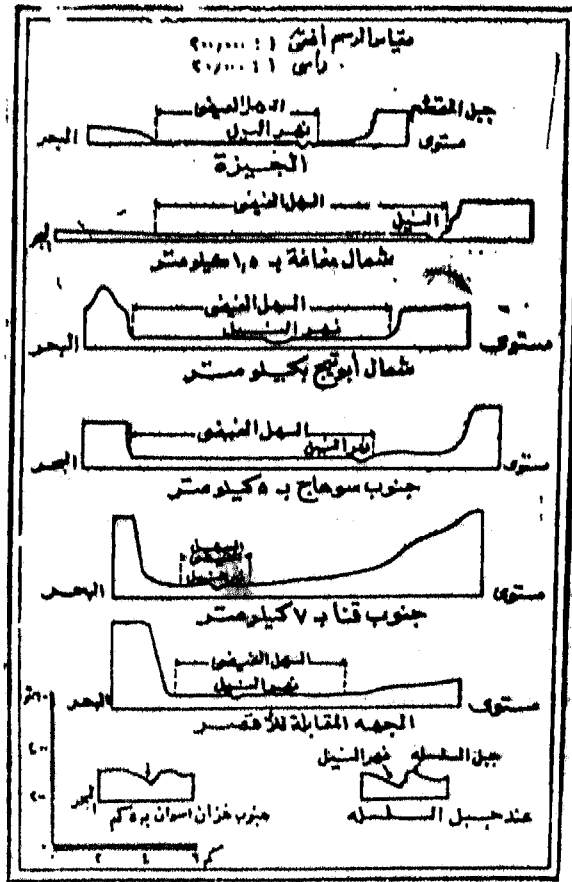 مقياس الرسم أفقى ١ : ٢٠٠,٠٠٠
رأسى ١ : ٢٠,٠٠٠
جبل المقطم
السهل الفيضى
نهر النيل
مستوى البحر
الجيزة
السهل الفيضى
النيل
البحر
شمال مغاغة بـ ١,٥ كيلو متر
السهل الفيضى
نهر النيل
مستوى البحر
شمال أبوتيج بكيلو متر
السهل الفيضى
نهر النيل
مستوى البحر
جنوب سوهاج بـ ٥ كيلو متر
السهل الفيضى
مستوى البحر
جنوب قنا بـ ٧ كيلو متر
السهل الفيضى
نهر النيل
مستوى البحر
الجهه المقابلة للأقصر
٤٠٠
٢٠٠
جبل السلسله
نهر النيل
البحر
عند جبل السلسله
جنوب خزان اسوان بـ ٥ كم
٠ ٢ ٤ ٦ كم